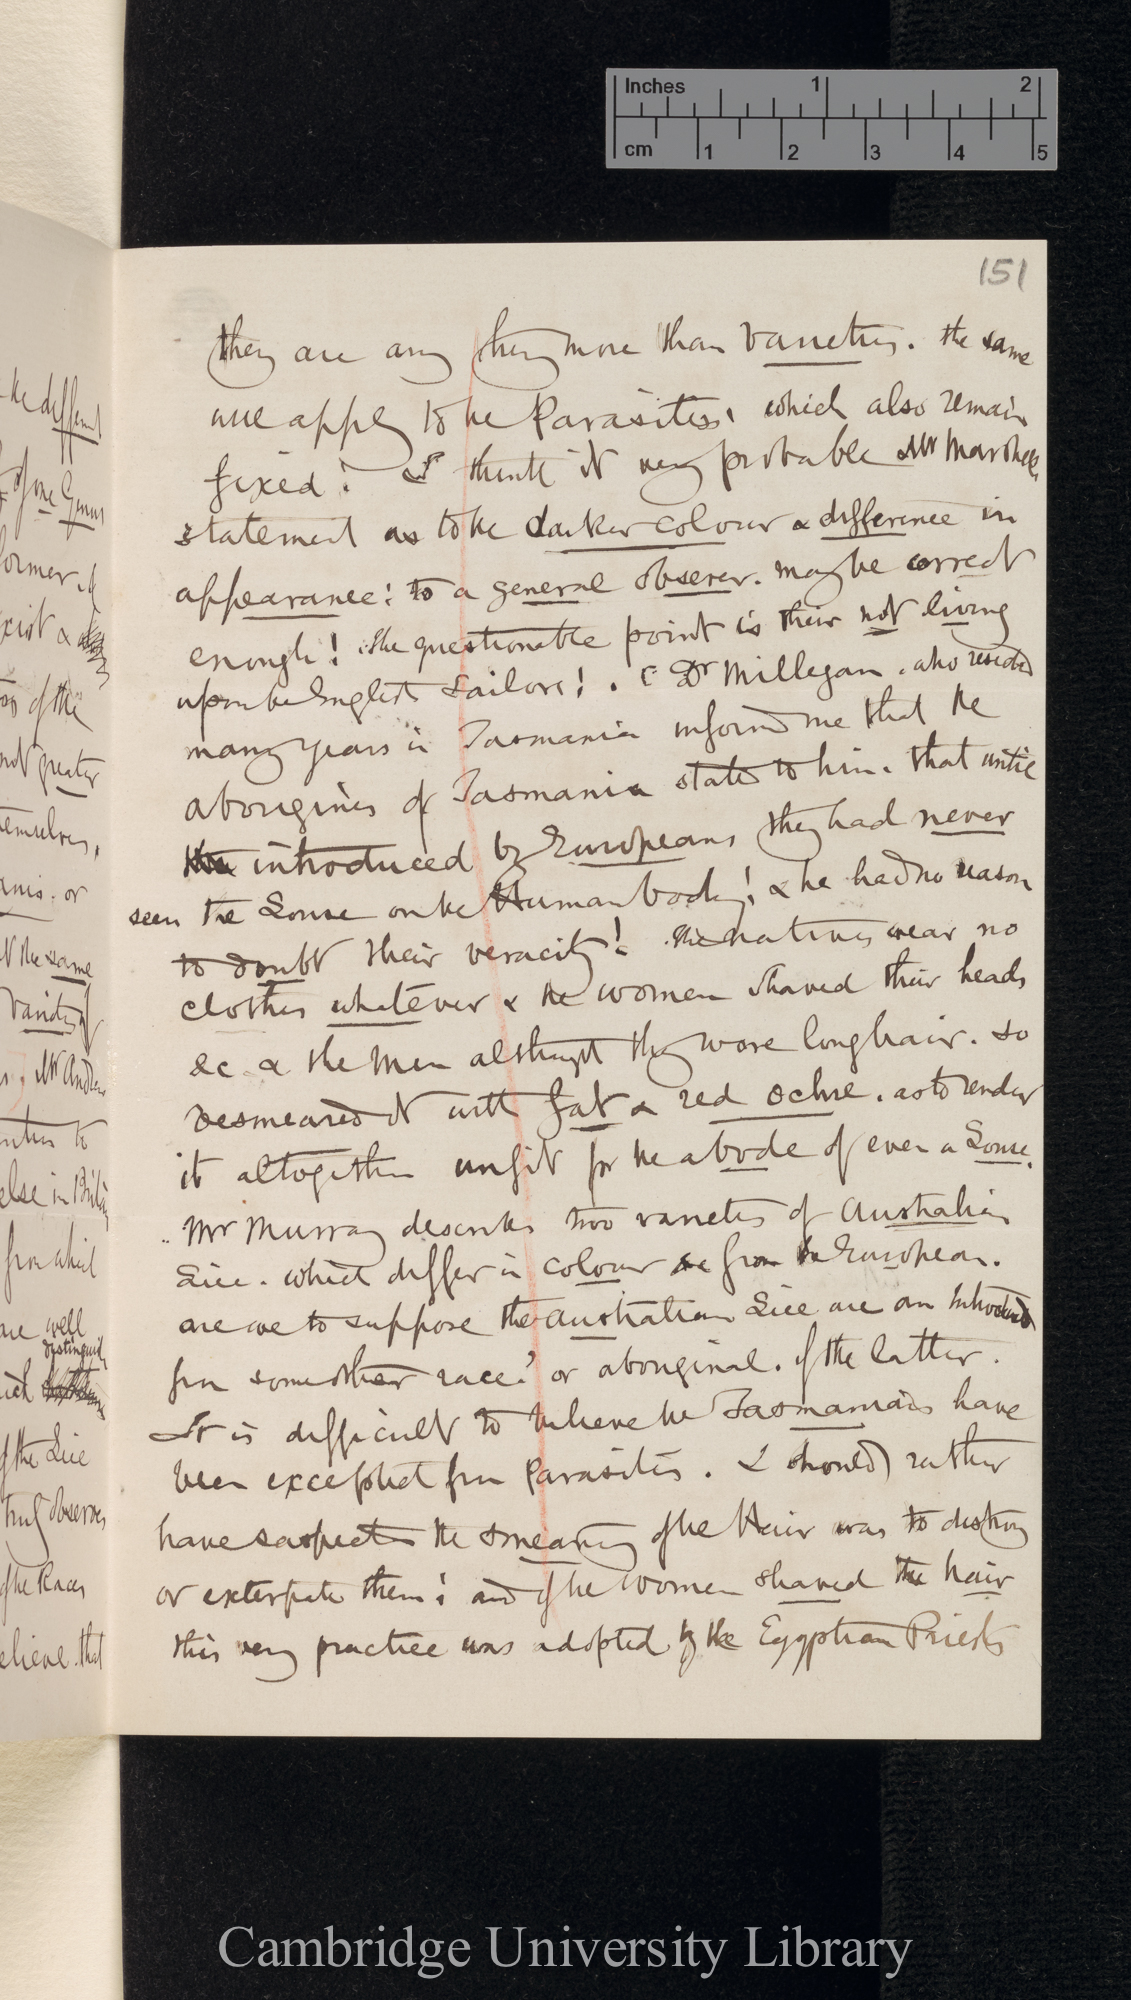 Inches 1 2
cm 1 2 3 4 5
151
they are any thing more than varieties. the same
will apply to the Parasites, which also remain
fixed! I think it very probable Mr Marshalls
statement as to the darker colour & difference in
appearance: to a general observer. may be correct
enough! the questionable point is their not living
upon the English Sailors!. Dr Millegan. who resided
many years in Tasmania informd me that the
aborigines of Tasmania stated to him. that until
introduced by Europeans they had never
seen the Louse on the Human body! & he had no reason
to doubt their veracity! the natives wear no
clothes whatever & the women shaved their heads
&c & the Men althought they wore long hair. so
besmeared it with fat & red ochre. as to render
it altogether unfit for the abode of even a Louse.
Mr Murray describes two varieties of Australian
Lice. which differ in colour from the European.
are we to suppose the Australian Lice are an introduced
from some other race? or aboriginal. if the latter.
It is difficult to believe the Tasmanians have
been excepted from Parasites. I should rather
have suspected the smearing of the Hair was to destroy
or exterpate them! and if the women shaved the hair
this very practice was adopted by the Egyptian Priests
the different
of one Genus
former. &
exist &
of the
not greater
themselves.
or
the same
Variety of
Mr Andrew
else in
from which
are well
distinguish
of the Lice
truly observes
of the Races
believe. that
Cambridge University Library